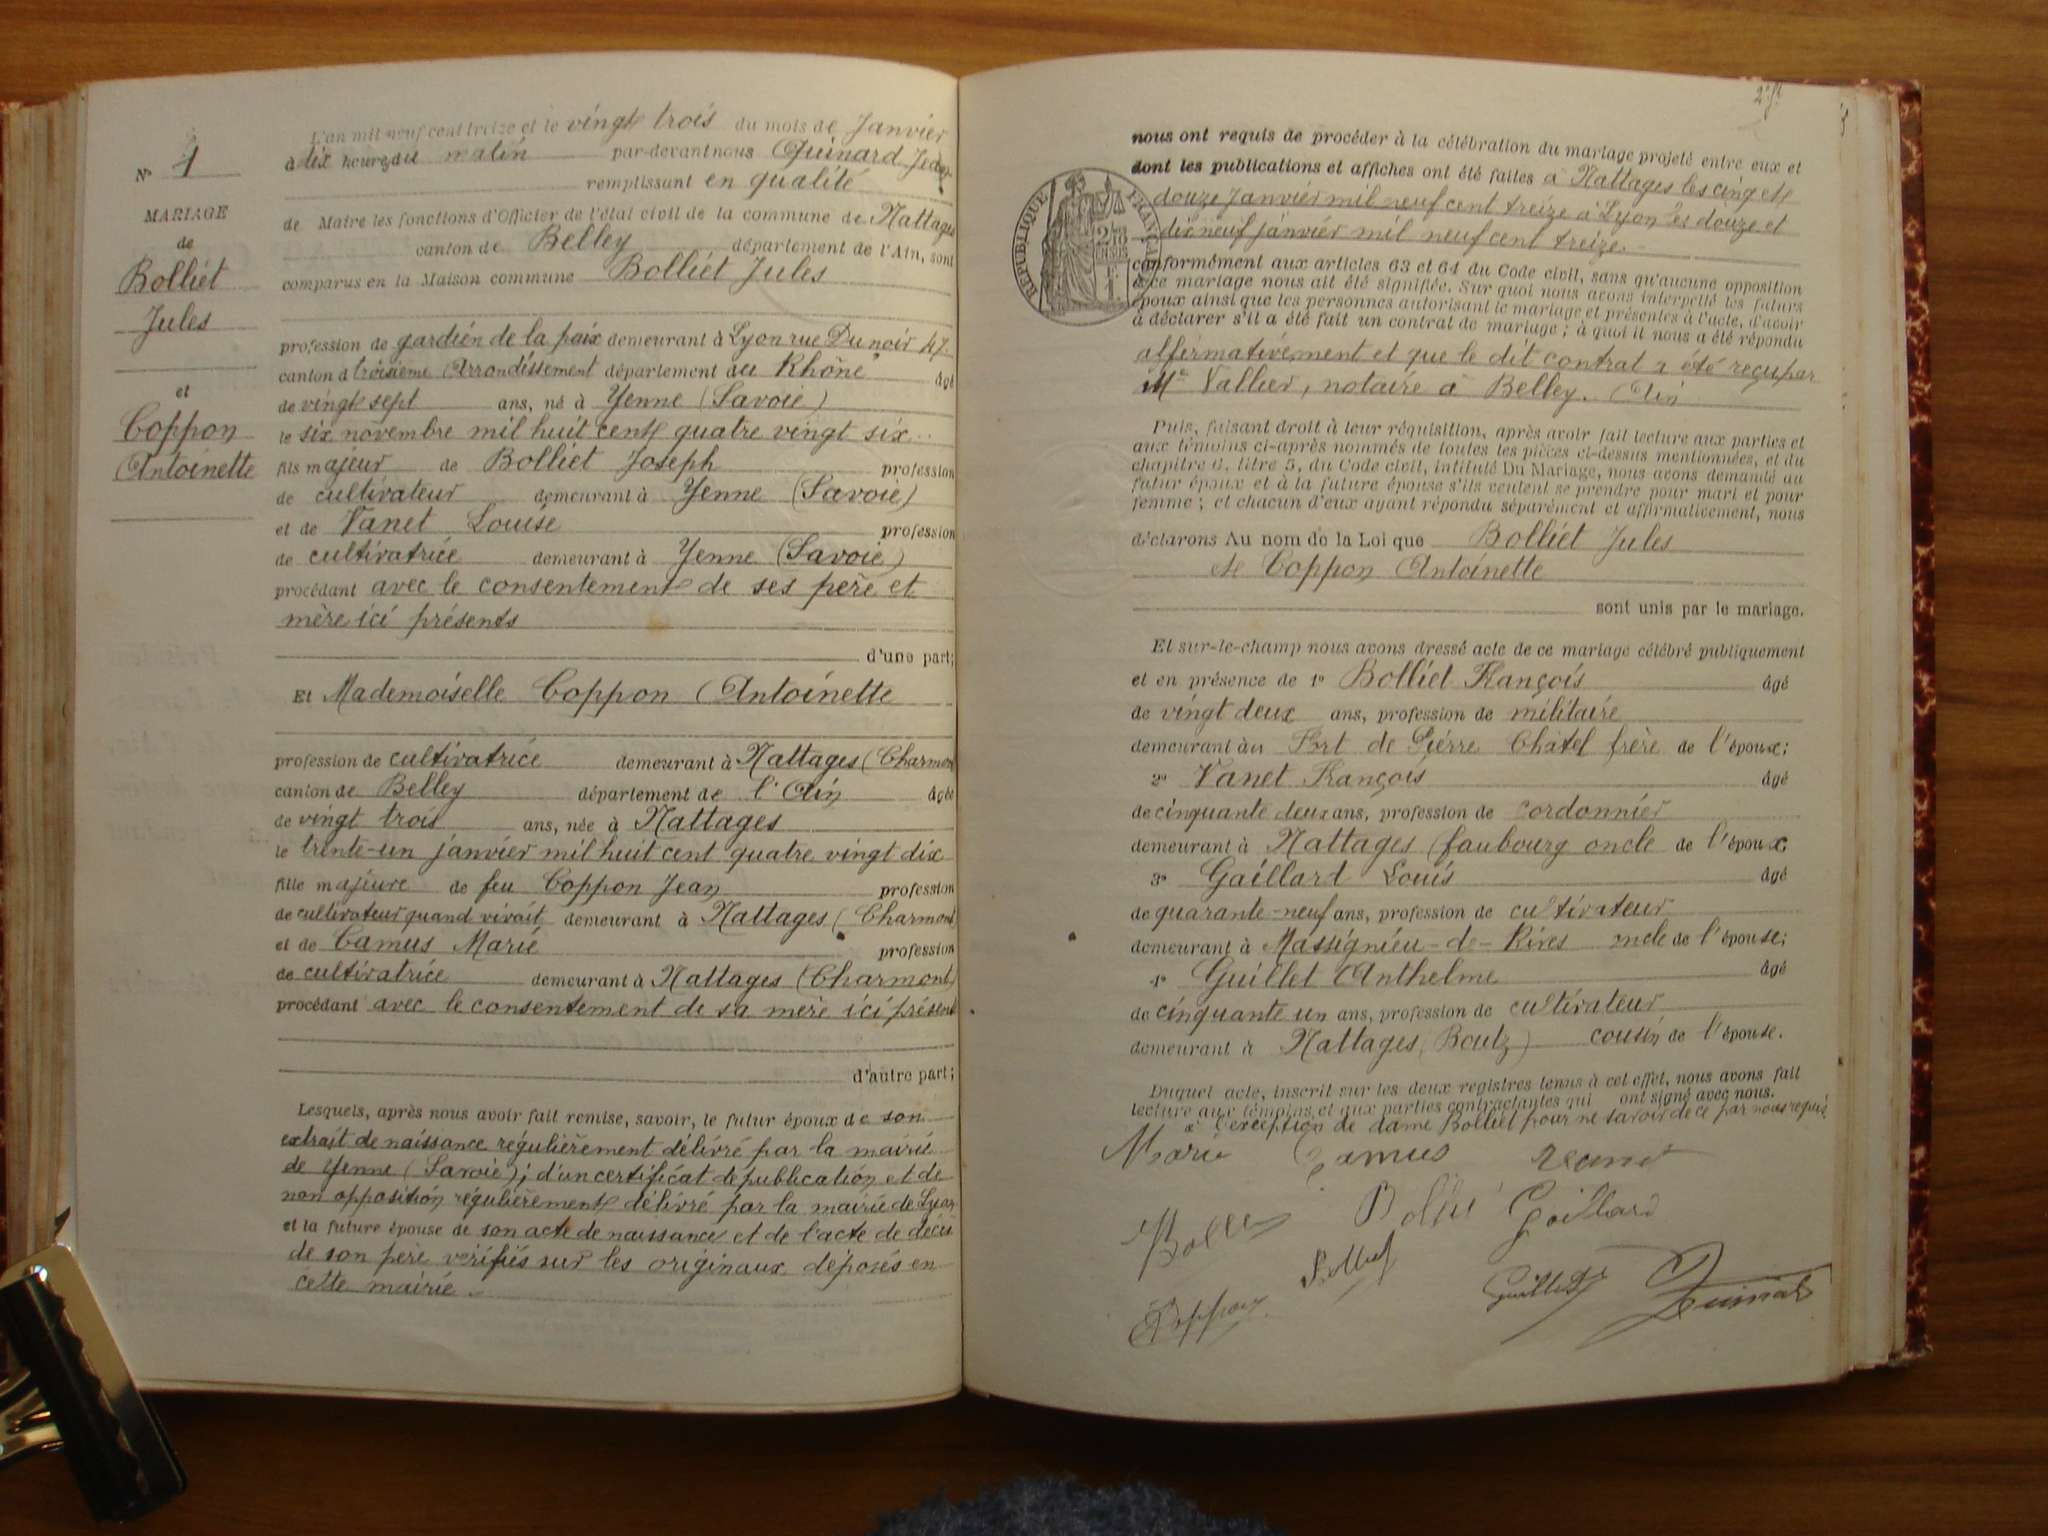 N° 1
MARIAGE
de
Bolliet
Jules
et
Coppon
Antoinette
L'an mil neuf cent treize et le vingt trois du mois de Janvier
à dix heures du matin par-devant nous Guinard Jean
remplissant en qualité
de Maire les fonctions d'Officier de l'état civil de la commune de Nattages
canton de Belley département de l'Ain, sont
comparus en la Maison commune Bolliet Jules
profession de gardien de la paix demeurant à Lyon rue Dunoir 47.
canton d troisième Arrondissement département du Rhône âgé
de vingt sept ans, né à Yenne (Savoie)
le six novembre mil huit cent quatre vingt six
fils majeur de Bolliet Joseph profession
de cultivateur demeurant à Yenne (Savoie)
et de Vanet Louise profession
de cultivatrice demeurant à Yenne (Savoie)
procédant avec le consentement de ses père et
mère ici présents
d'une part;
Et Mademoiselle Coppon Antoinette
profession de cultivatrice demeurant à Nattages (Charmont
canton de Belley département de l'Ain âgée
de vingt trois ans, née à Nattages
le trente-un janvier mil huit cent quatre vingt dix
fille majeure de feu Coppon Jean profession
de cultivateur quand vivait demeurant à Nattages (Charmont)
et de Camus Marie profession
de cultivatrice demeurant à Nattages (Charmont)
procédant avec le consentement de sa mère ici présent
d'autre part;
Lesquels, après nous avoir fait remise, savoir, le futur époux de son
extrait de naissance régulièrement délivré par la mairie
de Yenne (Savoie); d'un certificat de publication et de
non opposition régulièrement délivré par la mairie de Lyon
et la future épouse de son acte de naissance et de l'acte de décès
de son père vérifiés sur les originaux déposés en
cette mairie.
2 f.
nous ont requis de procéder à la célébration du mariage projeté entre eux et
dont les publications et affiches ont été faites à Nattages les cinq et
douze Janvier mil neuf cent treize à Lyon les douze et
dix neuf janvier mil neuf cent treize.
RÉPUBLIQUE FRANÇAISE
conformément aux articles 63 et 64 du Code civil, sans qu'aucune opposition
à ce mariage nous ait été signifiée. Sur quoi nous avons interpellé les futurs
époux ainsi que les personnes autorisant le mariage et présentes à l'acte, d'avoir
à déclarer s'il a été fait un contrat de mariage; à quoi il nous a été répondu
affirmativement et que le dit contrat a été reçu par
Me Vallier, notaire à Belley. Ain
Puis, faisant droit à leur réquisition, après avoir fait lecture aux parties et
aux témoins ci-après nommés de toutes les pièces ci-dessus mentionnées, et du
chapitre 6, titre 5, du Code civil, intitulé Du Mariage, nous avons demandé au
futur époux et à la future épouse s'ils veulent se prendre pour mari et pour
femme; et chacun d'eux ayant répondu séparément et affirmativement, nous
déclarons Au nom de la Loi que Bolliet Jules
et Coppon Antoinette
sont unis par le mariage.
Et sur-le-champ nous avons dressé acte de ce mariage célébré publiquement
et en présence de 1° Bolliet François âgé
de vingt deux ans, profession de militaire
demeurant au Fort de Pierre Châtel frère de l'époux;
2° Vanet François âgé
de cinquante deux ans, profession de cordonnier
demeurant à Nattages (faubourg oncle de l'époux;
3° Gaillard Louis âgé
de quarante-neuf ans, profession de cultivateur
demeurant à Massignieu-de-Rives oncle de l'épouse;
4° Guillet Anthelme âgé
de cinquante un ans, profession de cultivateur
demeurant à Nattages, Boutz) cousin de l'épouse.
Duquel acte, inscrit sur les deux registres tenus à cet effet, nous avons fait
lecture aux témoins et aux parties contractantes qui ont signé avec nous.
à l'exception de dame Bolliet pour ne savoir de ce par nous requis
Marie Camus Vanet
Bolliet Gaillard
Bolliet
Guillet
Coppon Guinard